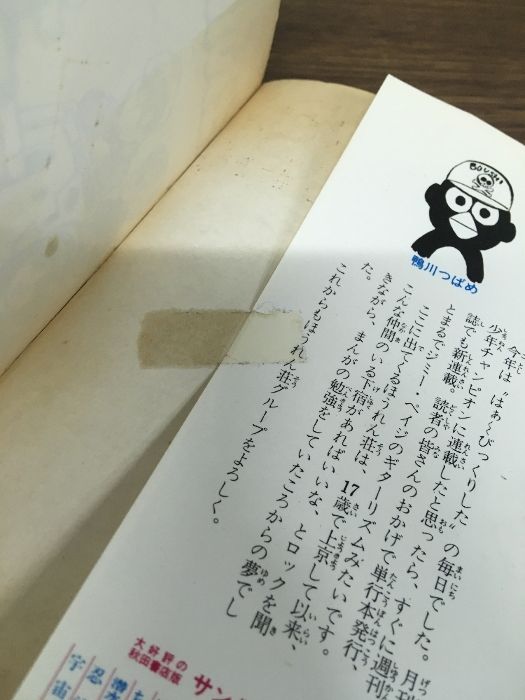 BOUSHI
鴨川つばめ
今年は“はぁ〜びっくりした”の毎日でした。月刊
少年チャンピオンに連載したと思ったら、すぐに週刊
誌でも新連載。読者の皆さんのおかげで単行本発行、
とまるでジミー・ペイジのギターリズムみたいです。
ここに出てくるほうれん荘は、17歳で上京して以来、
こんな仲間のいる下宿があればいいな、とロックを聞
きながら、まんがの勉強をしていたころからの夢でし
た。
これからもほうれん荘グループをよろしく。
大好評の
秋田書店版
サン
忍
宇宙